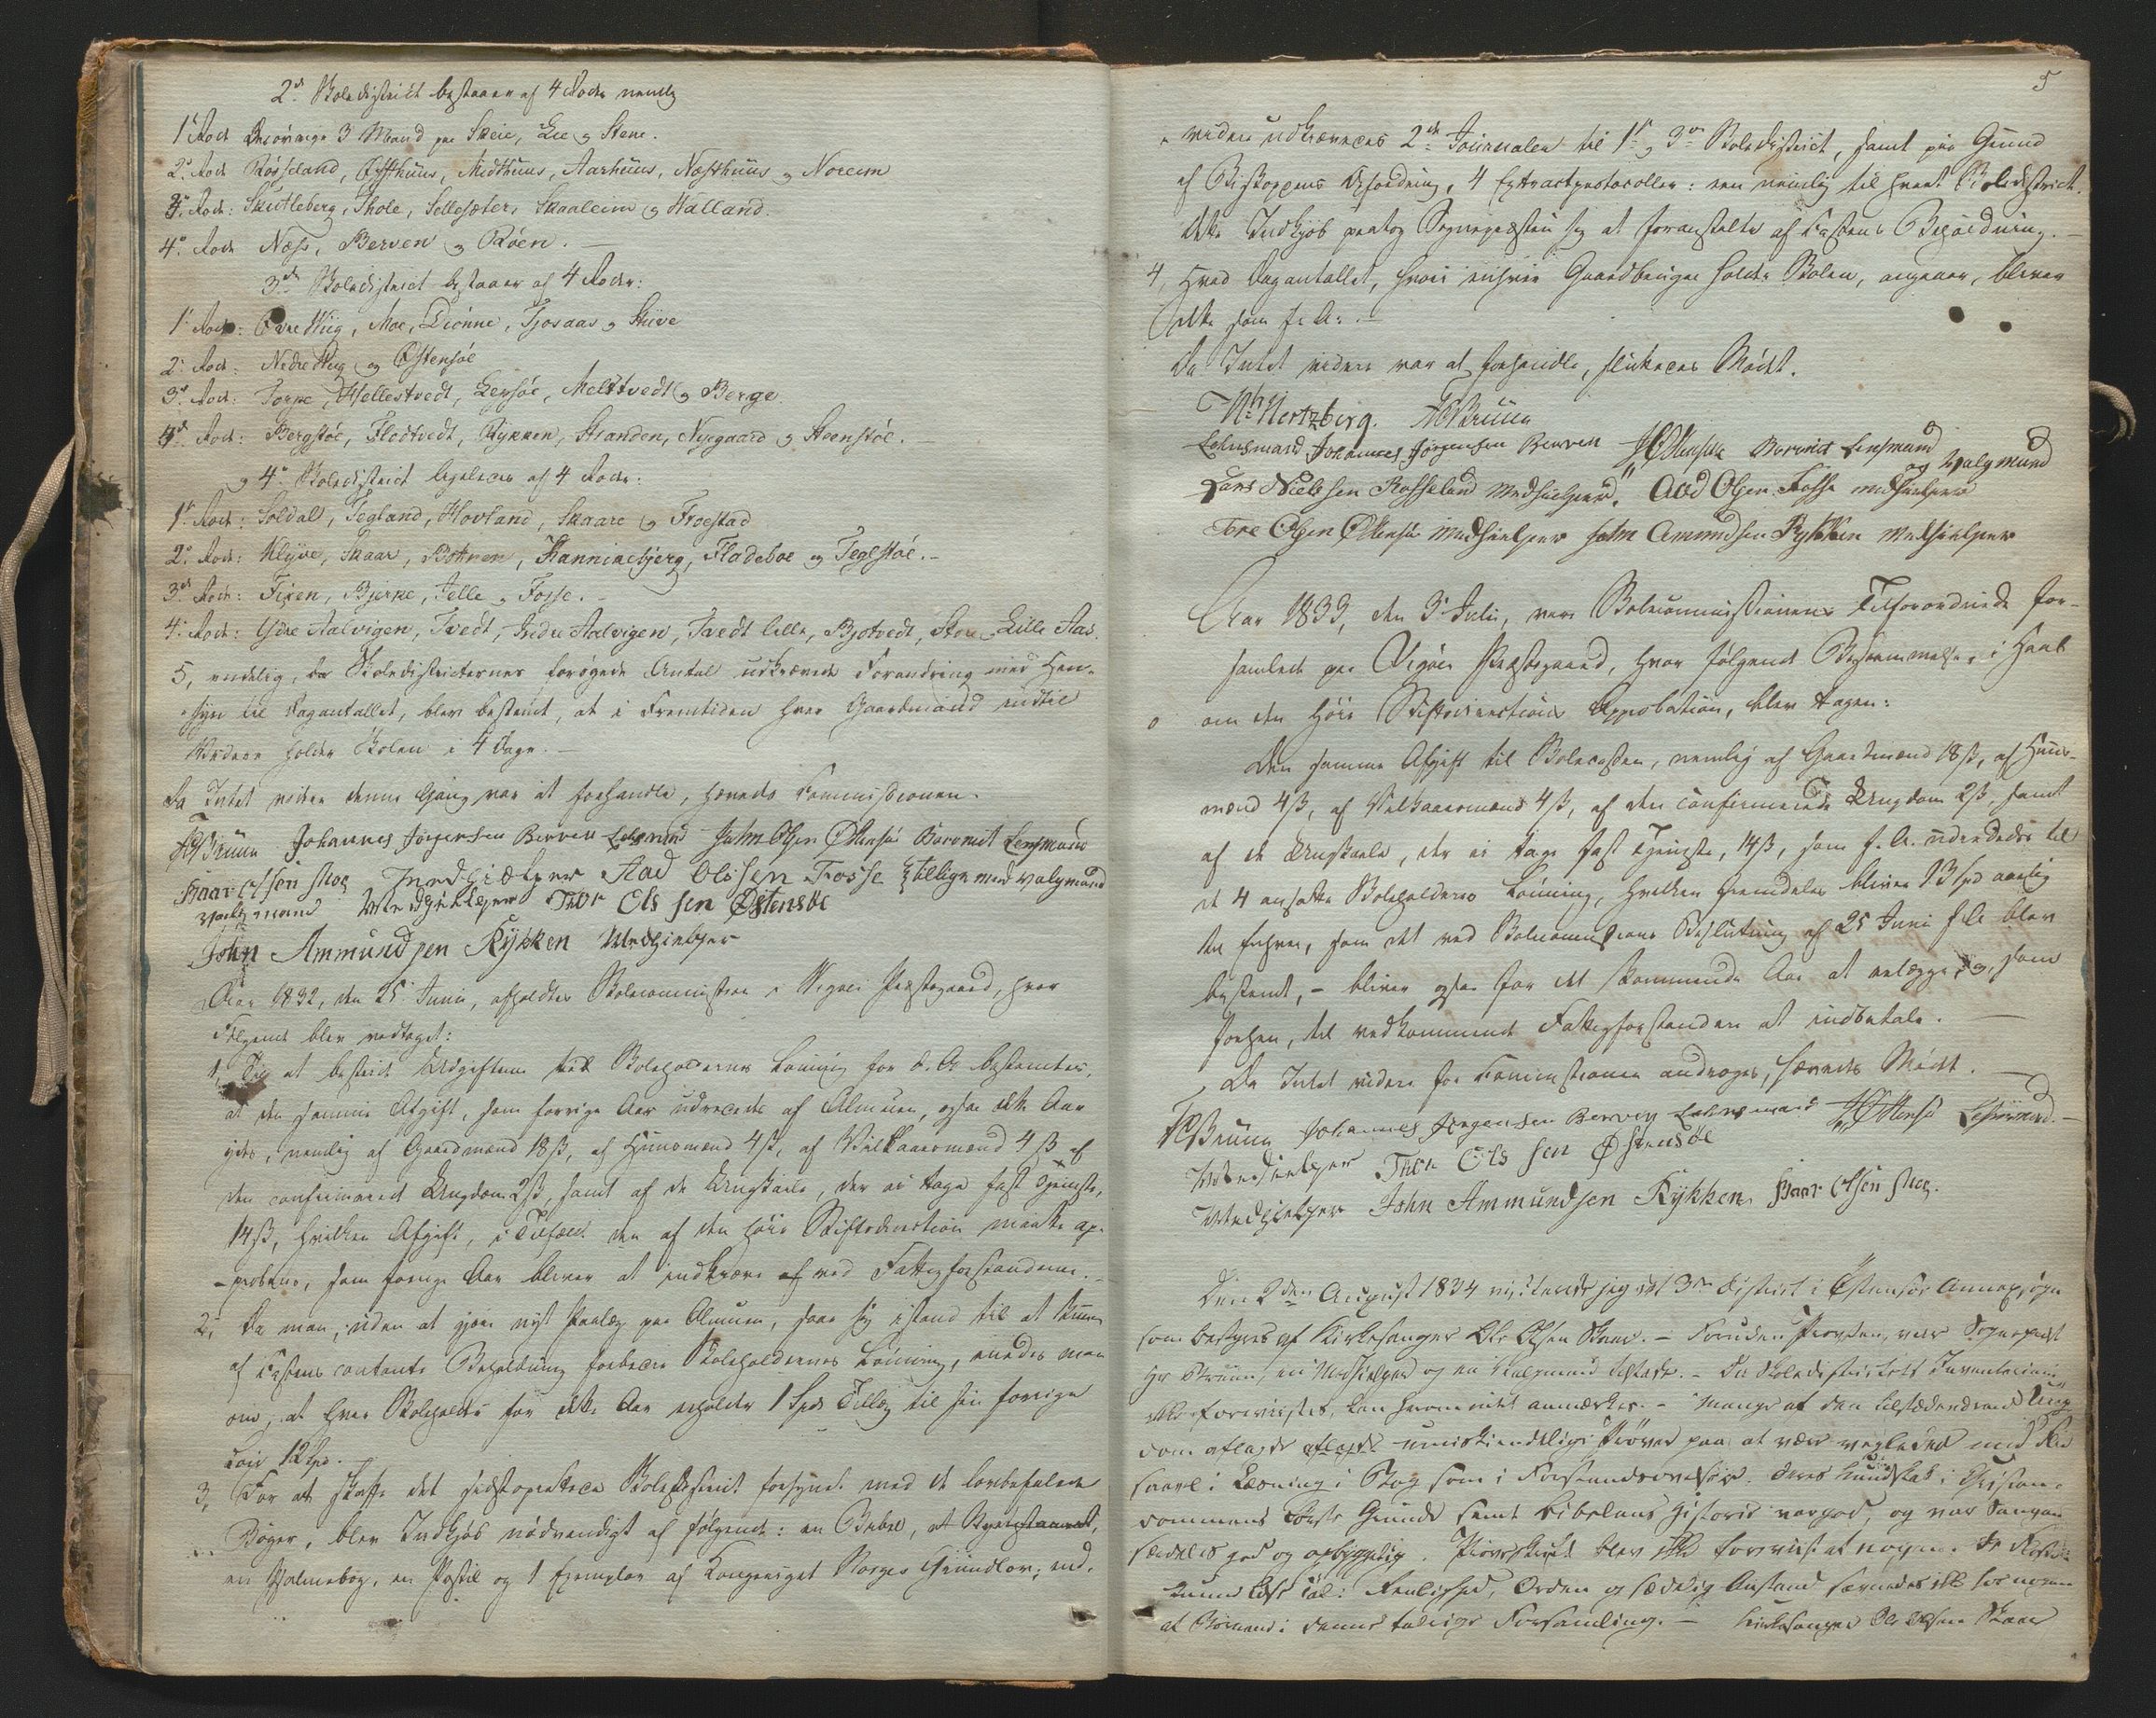 2d Skoledistrict bestaaer af 4 Roder nemlig
1ste Rode Øvrige 3 Mænd paa Skeie, Lee og Stene.
2d Rode Rosseland, Østhuus, Midthuus, Aarhuus, Næsthuus og Noreim
3d Rode: Skutleberg, Thole, Sellesæter, Skaaleim og Halland.
4d Rode Næss, Berven og Røen.
3die Skoledistrict bestaaer af 4 Roder:
1ste Rode: Øvre Wiig, Moe, Diønne, Tjosaas og Skive
2d Rode: Nedre Wiig og Østensøe
3die Rode: Torpe, Hellestvedt, Lepsøe, Melstvedt og Berge.
4d Rode: Bergstøe, Flodtvedt, Rykken, Stranden, Nyegaard og Steenstøe.
og 4d Skoledistrict ligeledes af 4 Roder:
1ste Rode: Soldal, Tegland, Hovland, Skaare og Froestad
2d Rode: Klyve, Skaar, Botnen, Kanninebjerg, Fladeboe og Teglstøe.
3die Rode: Fixen, Bjerke, Jelle og Fosse.
4d Rode: Ydre Aalvigen, Tvedt, Indre Aalvigen, Tvedt lille, Bjotvedt, Store og Lille Aas.
5, endelig, da Skoledistricternes forøgede Antal udkrævede Forandring med Hen-
syn til Dagantallet, blev bestemt, at i Fremtiden hver Gaardmand indtil
Videre holder Skolen i 4 Dage.
Da Intet videre denne Gang var at forhandle, hævedes Commissionen.
Bruun Johannes Jørgensen Berven Lehnsmand John Olsen Østensøe Beromit Lensmand
Haar Olsen Moe Medhielper Aad Olssen Fosse tillige med valgmænd
valgmand Medhielper Thor Ols sen Østensøe
John Ammundsen Rykken Medhielper
Aar 1832, den 25 Junii, afholdtes Skolecommission i Vigøer Præstegaard, hvor
Følgende blev vedtaget:
1, Til at bestride Udgifterne til Skoleholdernes Lønning for d. A. bestemtes,
at den samme Afgift, som forrige Aar udrededes af Almuen, ogsaa dette Aar
ydes, nemlig af Gaardmænd 18 ß, af Huusmænd 4 ß, af Vilkaarsmænd 4 ß af
den confirmerede Ungdom 2 ß, samt af de Ungkarle, der ei tage fast Tjeneste,
14 ß, hvilken Afgift, i Tilfælde den af den høie Stiftsdirection maatte ap-
proberes, som forrige Aar bliver at indkræve af ved Fattigforstanderne.
2, Da man, uden at gjøre nyt Paalæg paa Almuen, saae sig istand til at kunne
af Cassens contante Beholdning forbedre Skoleholdernes Lønning, enedes man
om, at hver Skoleholder for dette Aar erholder 1 Spd Tillæg til sin forrige
Løn 12 Spd.
3, For at skaffe det sidstoprettede Skoledistrict forsynet med de lovbefalede
Bøger, blev Indkjøb nødvendigt af følgende: en Bibel,
en Psalmebog, en Postil og 1 Exemplar af Kongeriget Norges Grundlov; end-
5
videre udkrævedes 2de Journaler til 1ste og 3die Skoledistrict, samt paa Grund
af Biskoppens Befordring, 4 Extractprotocoller: een nemlig til hvert Skoledistrict.
Dette Indkjøb paatog Sognepræsten sig at foranstalte af Cassens Beholdning.
4, Hvad Dagantallet, hvori enhver Gaardbruger holder Skolen, angaaer, bliver
dette som f. A.
Da Intet videre var at forhandle, sluttedes Mødet.
N Hertzberg. Bruun
Lehnsmand Johannes Jørgensen Berven JOstensøe Beromit Lensmand
Lars Nielsen Rosseland Medhielper. Aad Olsen Fosse medhielper og Valgmand
Tore Olsen Østensø Medhielper John Amundsen Rykken Medhielper
Aar 1833, den 3 Julii, vare Skolecommissionens Tilforordnede for-
samlede paa Vigøers Præstegaard, hvor følgende Bestemmelse, i Haab
om den høie Stiftsdirections Approbation, blev tagen:
Den samme Afgift til Skolecassen, nemlig af Gaardmænd 18 ß, af Huus-
mænd 4 ß, af Vilkaarsmænd 4 ß, af den confirmerede Ungdom 2 ß, samt
af de Ungkarle, der ei tage fast Tjeneste, 14 ß, som f. A. udrededes til
de 4 ansatte Skoleholderes Lønning, hvilken fremdeles bliver 13 Spd aarlig
til Enhver, som det ved Skolecommissions Beslutning af 25 Junii f. A. blev
bestemt, - bliver ogsaa for det kommende Aar at erlægge, og, som
forhen, til vedkommende Fattigforstandere at indbetale.
Da Intet videre for Commissionen androges, hævedes Mødet.
Bruun Johannes Jørgensen Berven Lehnsmand JOstensø Lehnsmand.
Medhielper Thor Ols sen Østensøe
Medhielper John Ammundsen Rykken. Haar Olsen Moe.
Den 2den August 1834 visiterede jeg det 3die District i Østensøe Annexsogn
som bestyres af Kirkesanger Ole Olsen Skaar. - Foruden Provsten, var Sognepræst
Hr Bruun, en Medhielper og en Valgmand tilstede. - Da Skoledistrictets Inventarium
ikke forevistes, kan herom intet anmærkes. - Mange af den tilstedeværende Ung-
dom aflagde umiskiendelige Prøver paa at være veiledet med Flid
saavel i Læsning i Bog som i Forstandsøvelser. Deres Kundskab i Christen-
dommens første Grunde samt Bibelens Historie var god, og var Sangen
særdeles god og opbyggelig. Prøveskrift blev ikke foreviist af nogen. De fleste
kunde læse Tal: Renlighed, Orden og sædelig Anstand savnedes ikke hos nogen
af Børnene i denne talrige Forsamling. - Kirkesanger Ole Olsen Skaar